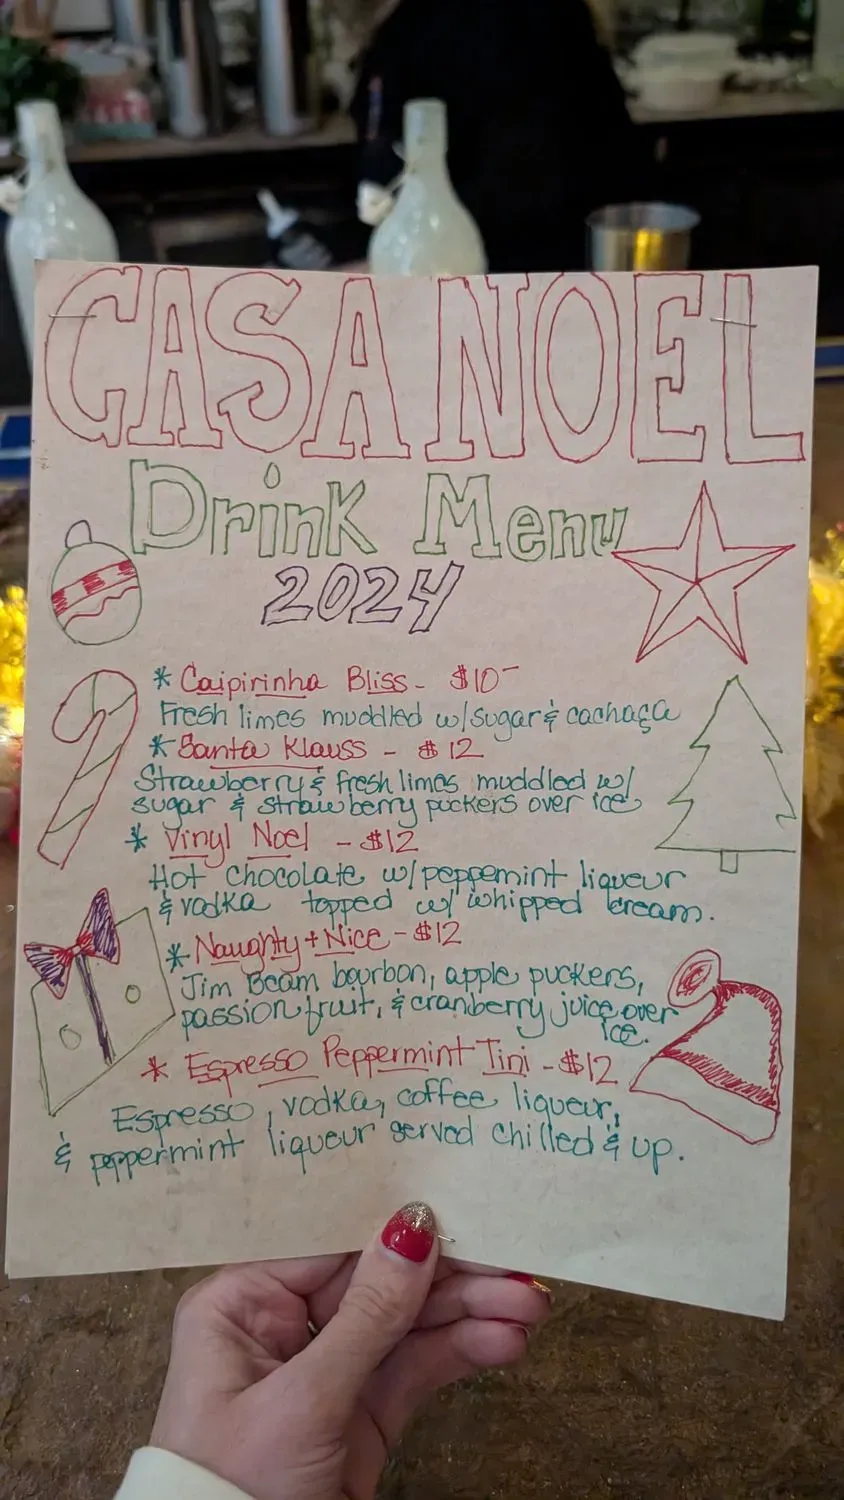 CASA NOEL
Drink Menu
2024
* Caipirinha Bliss - $10-
Fresh limes muddled w/sugar & cachaça
* Santa Klauss - $12
Strawberry & fresh limes muddled w/
sugar & strawberry puckers over ice
* Vinyl Noel - $12
Hot chocolate w/peppermint liqueur
& vodka topped w/ whipped cream.
* Naughty + Nice - $12
Jim Beam bourbon, apple puckers,
passion fruit, & cranberry juice over
ice.
* Espresso Peppermint Tini - $12
Espresso, vodka, coffee liqueur,
& peppermint liqueur served chilled & up.